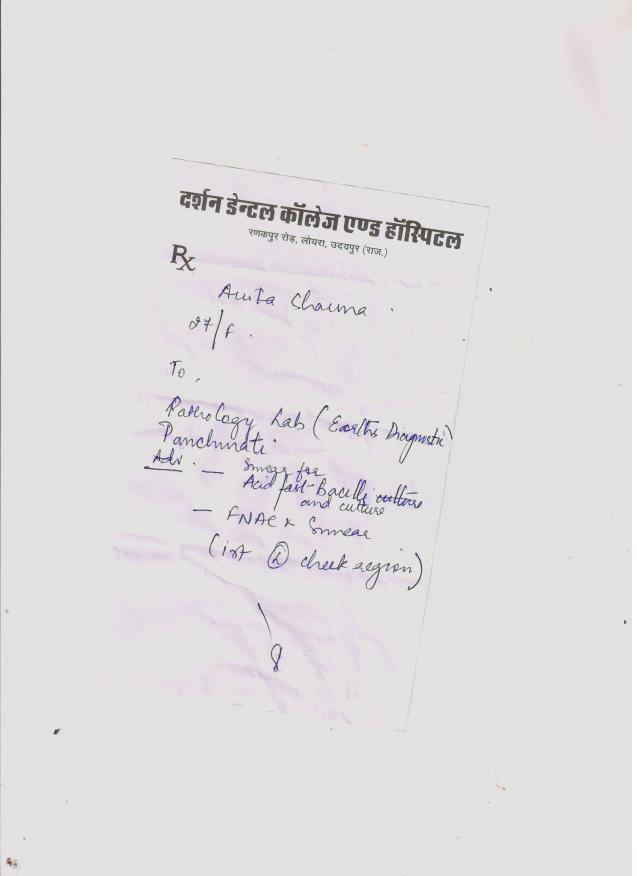 दर्शन डेन्टल कॉलेज एण्ड हॉस्पिटल
रणकपुर रोड़, लोयरा, उदयपुर (राज.)
Rx
27/F
To,
Pathology Lab ( Diagnostic)
Panchwati.
Adv. — Smear for
Acid fast Bacilli culture
and culture
— FNAC x Smear
(irt Ⓛ cheek region)